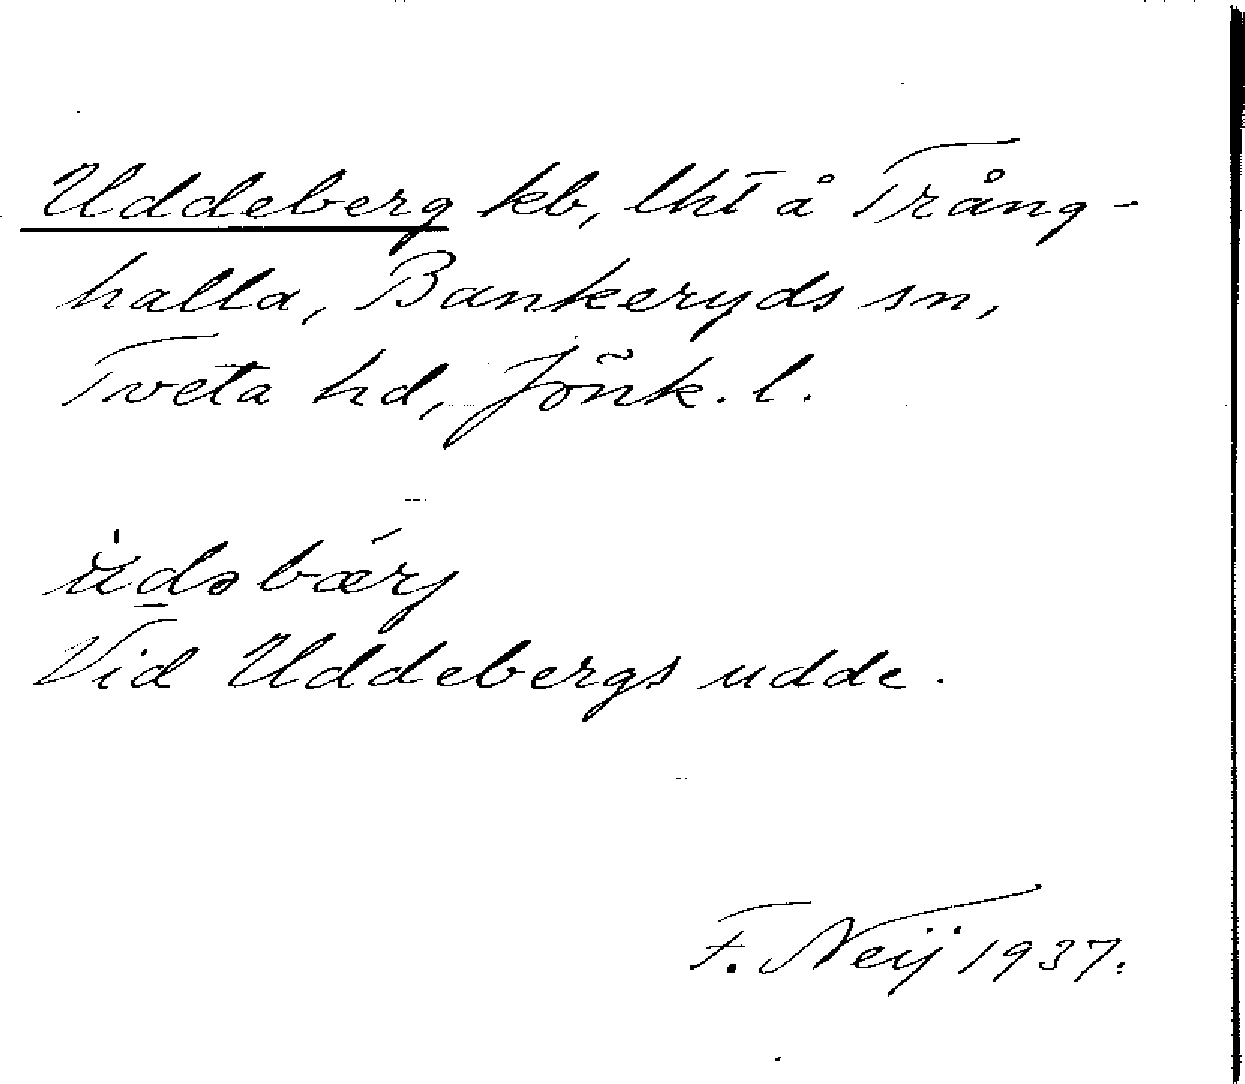 Uddeberg kb, lht å Trång-
halla, Bankeryds sn,
Tveta hd, Jönk. l.
ùdəbǽrj
Vid Uddebergs udde.
F. Neij 1937.